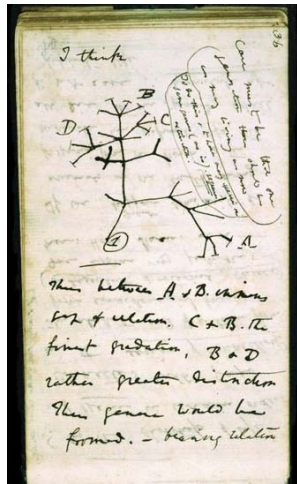 I think
B
C
D
A
1
Case must be that one
generation then should be
as many living as now
To do this & to have many species in
same genus (as is) requires
extinction.
36
Thus between A & B. immens
gap of relation. C & B. the
finest gradation, B & D
rather greater distinction
Thus genera would be
formed. — bearing relation